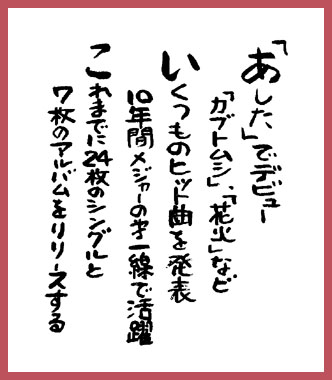 「あした」でデビュー
「カブトムシ」、「花火」など
いくつものヒット曲を発表
10年間メジャーの才一線で活躍
これまでに24枚のシングルと
7枚のアルバムをリリースする